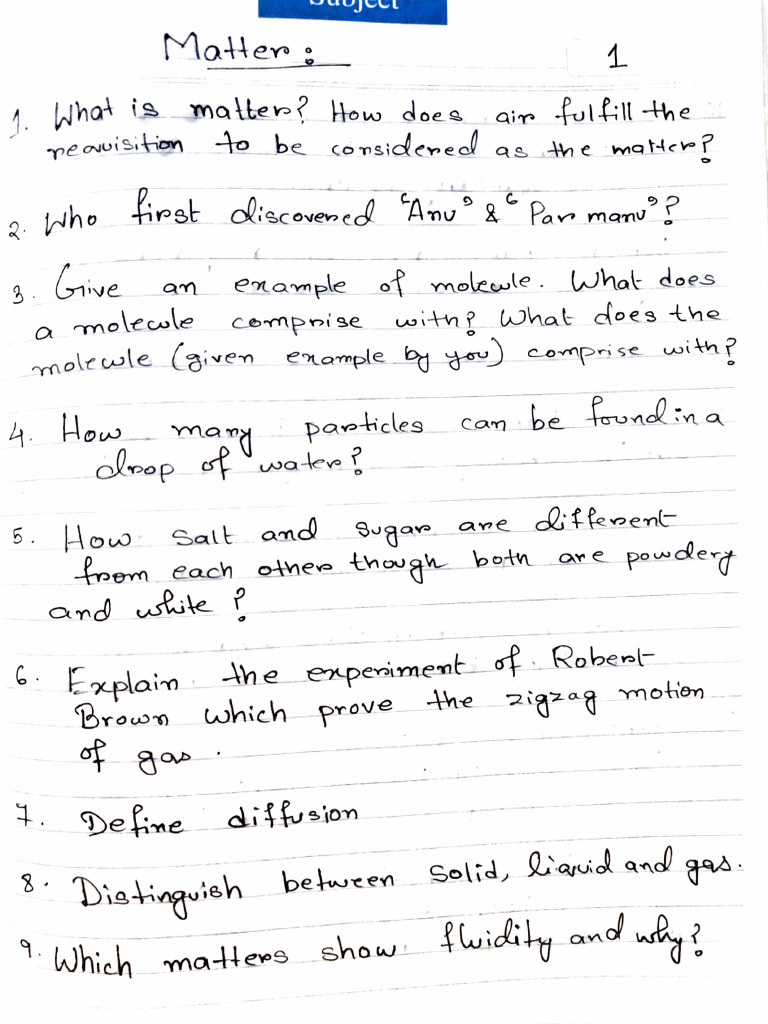 Subject
Matter :
1
1. What is matter? How does air fulfill the
requisition to be considered as the matter?
2. Who first discovered 'Anu' & 'Parmanu'?
3. Give an example of molecule. What does
a molecule comprise with? What does the
molecule (given example by you) comprise with?
4. How many particles can be found in a
drop of water?
5. How salt and sugar are different
from each other though both are powdery
and white?
6. Explain the experiment of Robert
Brown which prove the zigzag motion
of gas.
7. Define diffusion
8. Distinguish between solid, liquid and gas.
9. Which matters show fluidity and why?